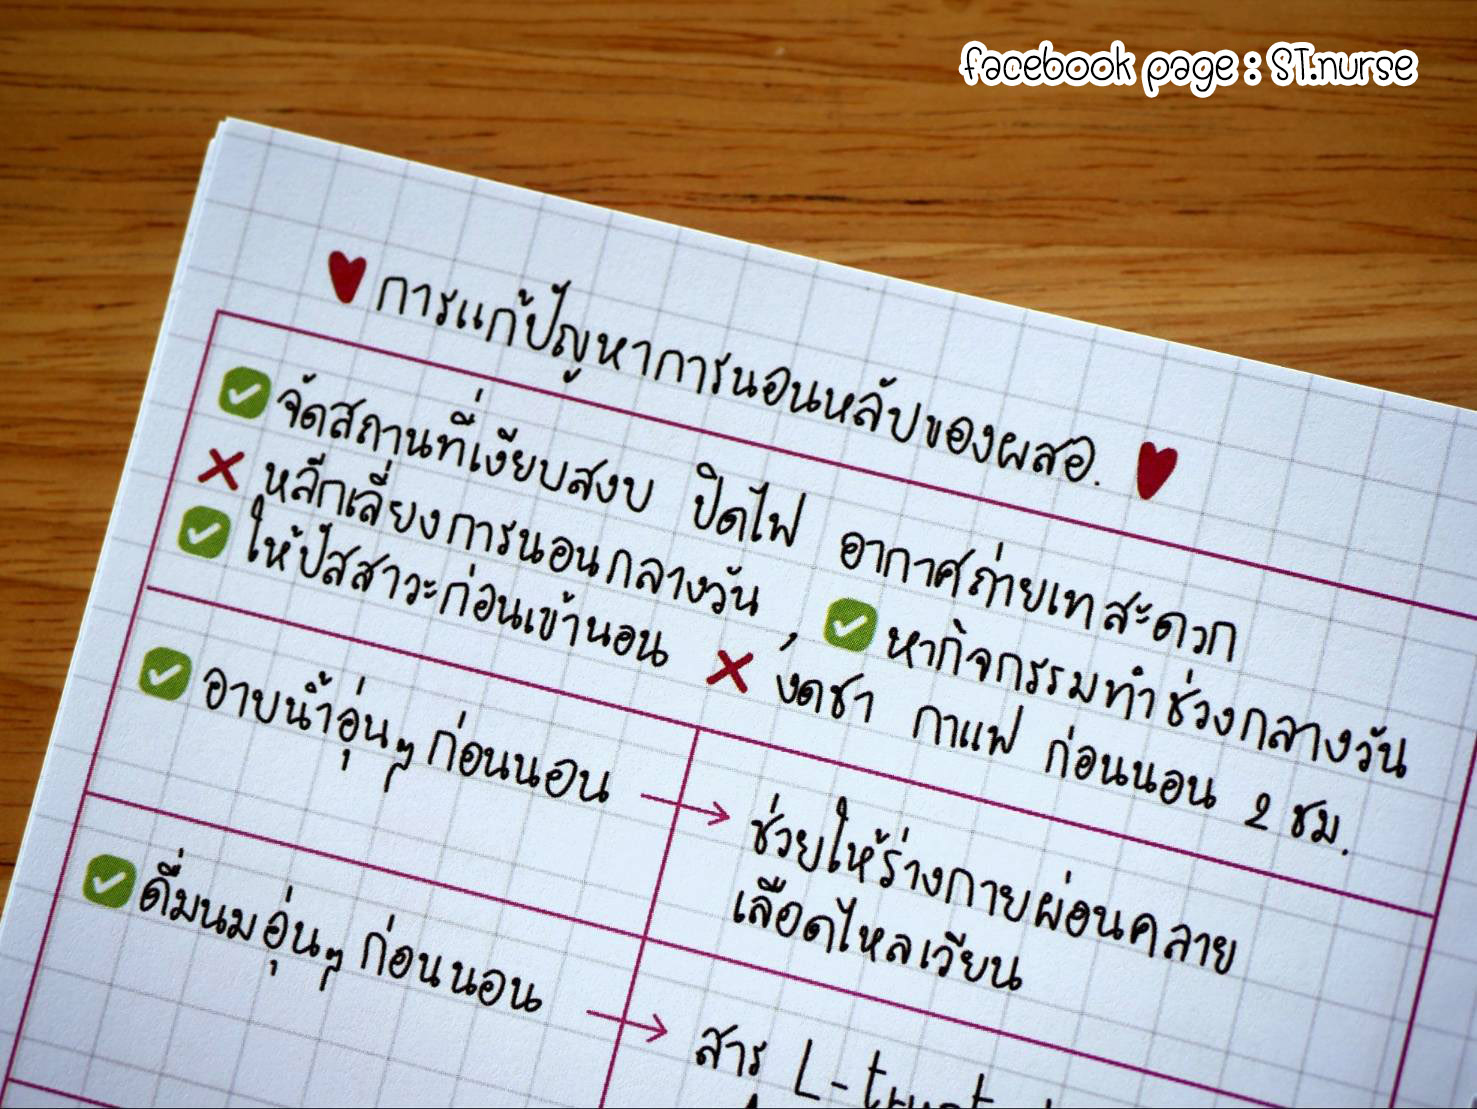 facebook page : ST.nurse
การแก้ปัญหาการนอนหลับของผสอ.
จัดสถานที่เงียบสงบ ปิดไฟ อากาศถ่ายเทสะดวก
หลีกเลี่ยงการนอนกลางวัน , หากิจกรรมทำช่วงกลางวัน
ให้ปัสสาวะก่อนเข้านอน งดชา กาแฟ ก่อนนอน 2 ชม.
อาบน้ำอุ่นๆ ก่อนนอน → ช่วยให้ร่างกายผ่อนคลาย
เลือดไหลเวียน
ดื่มนมอุ่นๆ ก่อนนอน → สาร L-